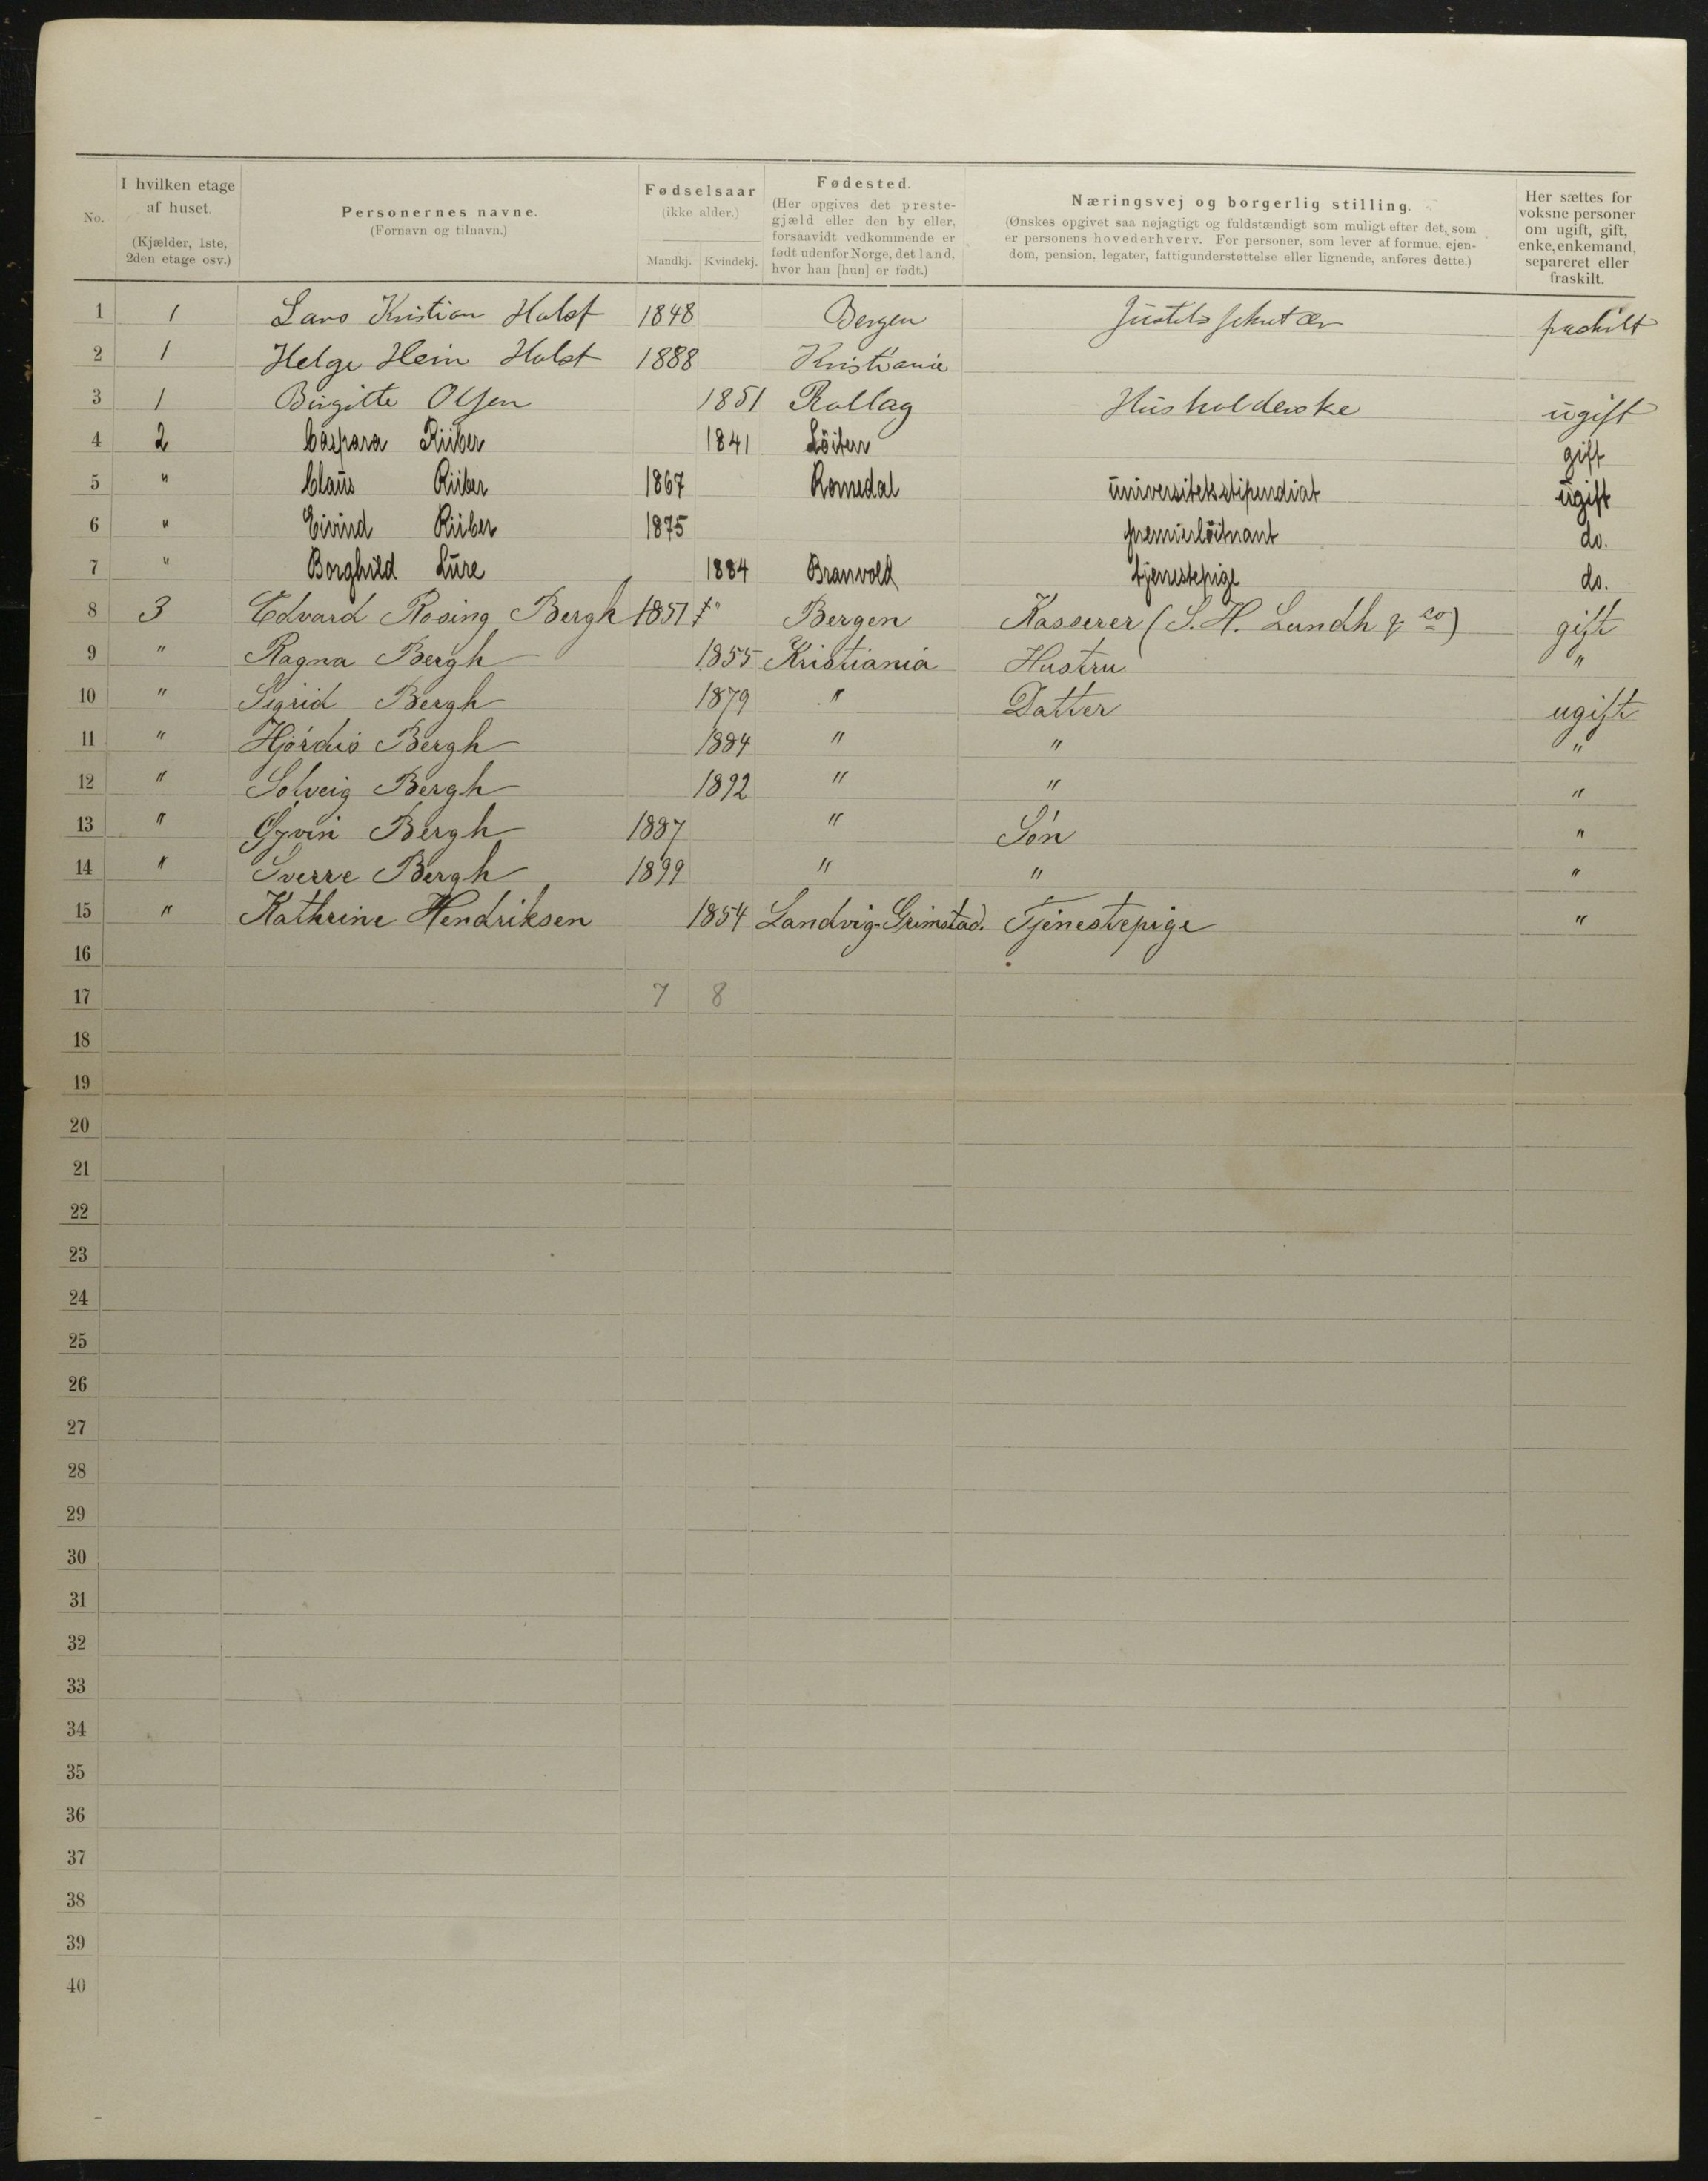 No. | I hvilken etage af huset. (Kjælder, 1ste, 2den etage osv.) | Personernes navne. (Fornavn og tilnavn.) | Fødselsaar (ikke alder.) Mandkj. Kvindekj. | Fødested. (Her opgives det prestegjæld eller den by eller, forsaavidt vedkommende er født udenfor Norge, det land, hvor han [hun] er født.) | Næringsvej og borgerlig stilling. (Ønskes opgivet saa nøjagtigt og fuldstændigt som muligt efter det, som er personens hovederhverv. For personer, som lever af formue, ejendom, pension, legater, fattigunderstøttelse eller lignende, anføres dette.) | Her sættes for voksne personer om ugift, gift, enke, enkemand, separeret eller fraskilt.
1 1 Lars Kristian Holst 1848 Bergen fraskilt
2 1 Helge Hein Holst 1888 Kristiania
3 1 Birgitte Olsen 1851 Rollag Husholderske ugift
4 2 Caspara Riiber 1841 Löiten gift
5 " Claus Riiber 1867 Romedal universitetsstipendiat ugift
6 " Eivind Riiber 1875 premierlöitnant do.
7 " Borghild Lure 1884 Branvold tjenestepige do.
8 3 Edvard Rosing Bergh 1851 Bergen Kasserer (S. H. Lundh & co) gift
9 " Ragna Bergh 1855 Kristiania Hustru "
10 " Sigrid Bergh 1879 " Datter ugift
11 " Hjórdis Bergh 1884 " " "
12 " Solveig Bergh 1892 " " "
13 " Øjvin Bergh 1887 " Són "
14 " Sverre Bergh 1899 " " "
15 " Kathrine Hendriksen 1854 Landvig-Grimstad. Tjenestepige "
16
17 7 8
18
19
20
21
22
23
24
25
26
27
28
29
30
31
32
33
34
35
36
37
38
39
40